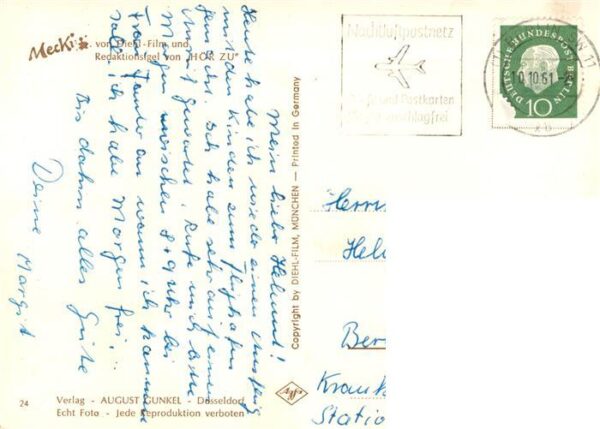 Mecki
v. von Diehl-Film und
Redaktionsigel von "HÖR ZU"
Mein lieber Helmut!
Heute habe ich wieder einen Ausflug
mit den Kindern zum Flughafen
gemacht. Ich habe sehr auf einen
Anruf gewartet. Rufe mich bitte
Morgen zwischen 8+9 Uhr bei
Frau an wann ich kommen
soll, ich habe Morgen frei.
Bis dahin alles Gute
Deine Margit
Copyright by DIEHL-FILM, MÜNCHEN — Printed in Germany
24
Verlag - AUGUST GUNKEL - Düsseldorf
Echt Foto - Jede Reproduktion verboten
Agfa
Nachtluftpostnetz
und Postkarten
zuschlagfrei
11
10.10.61
DEUTSCHE BUNDESPOST BERLIN
10
Herrn
Hel
Ber
Krank
Statio